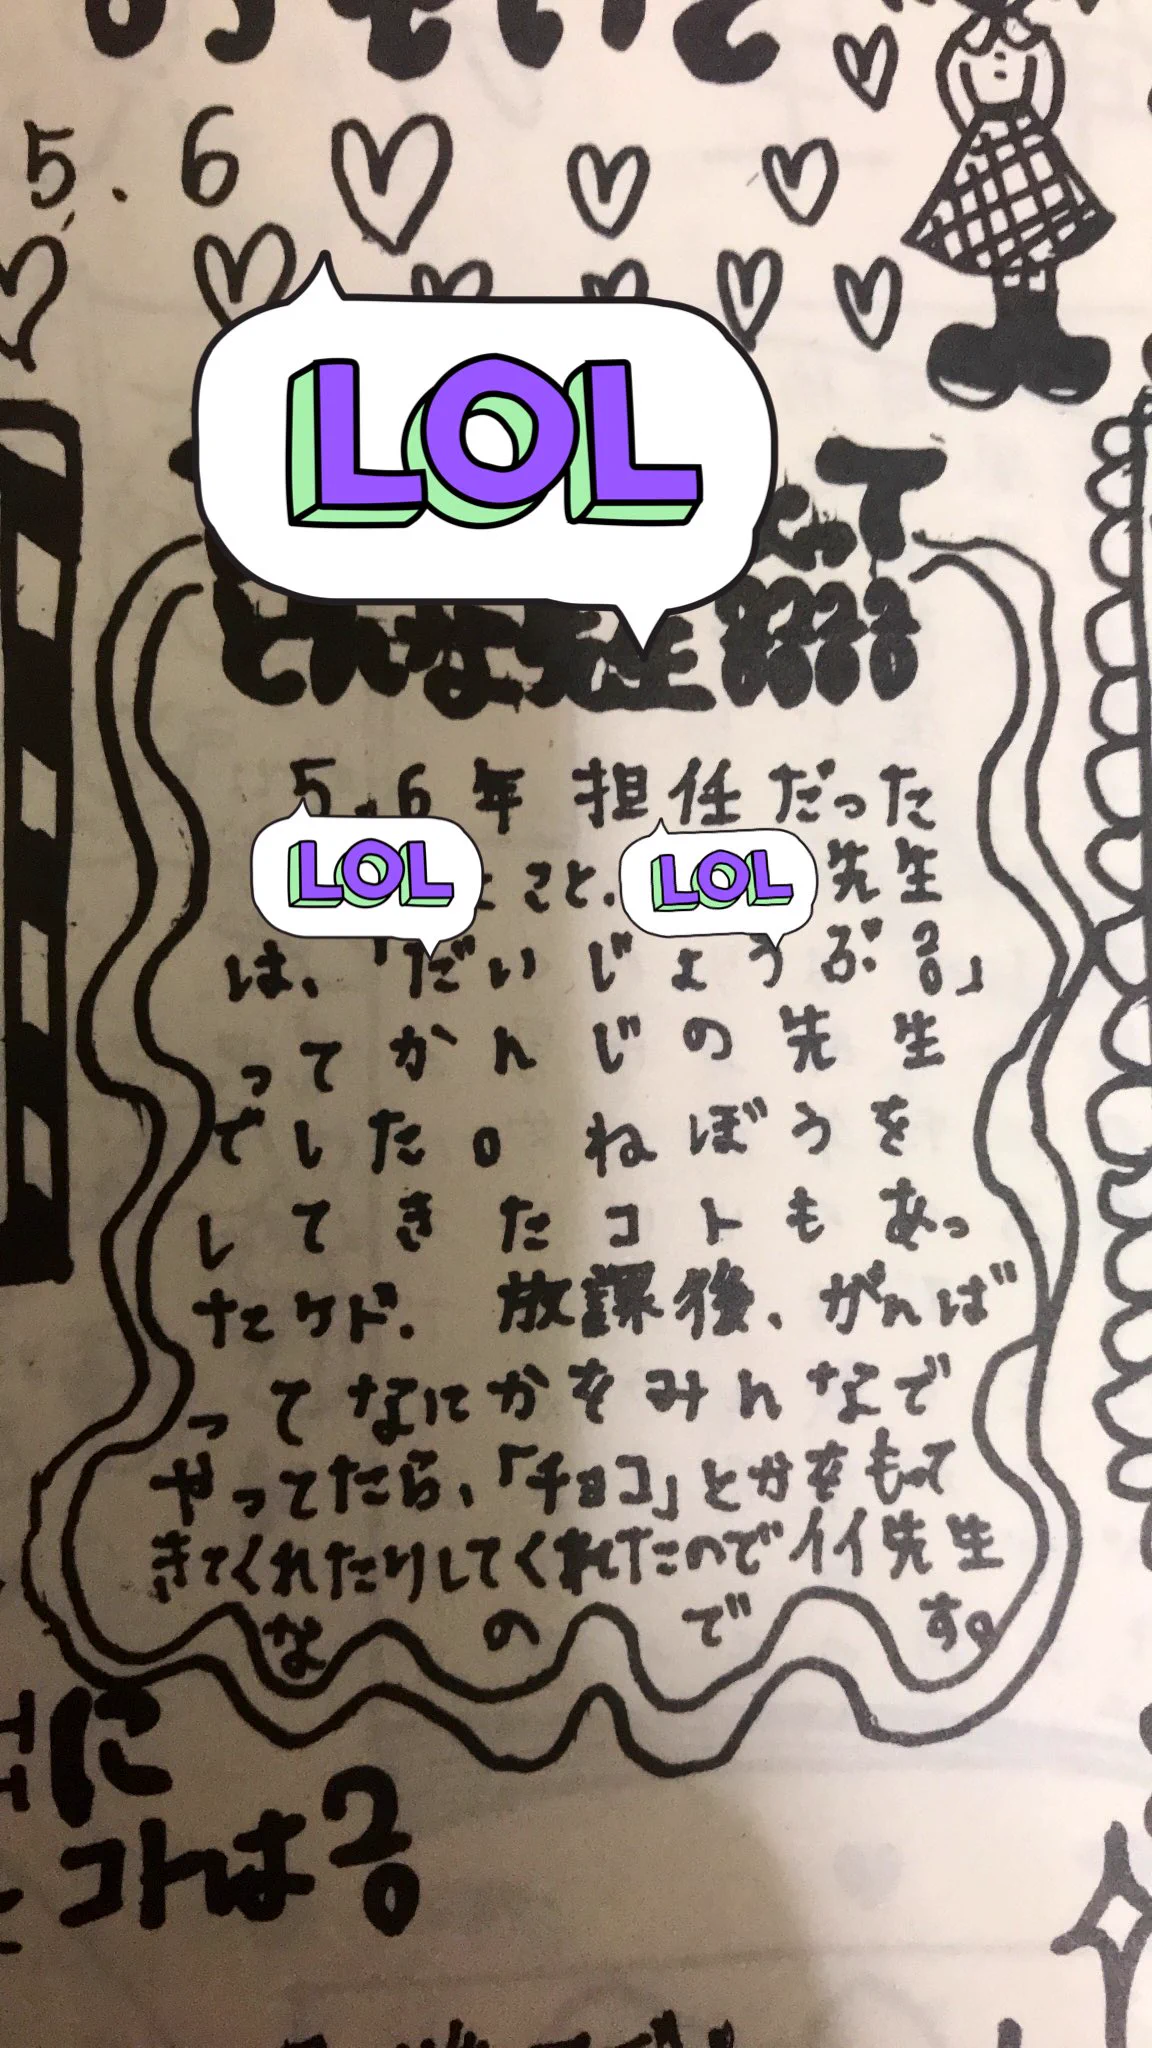 5.6
LOL
って
どんな先生???
5.6年担任だった
LOL
こと、
LOL
先生
は、「だいじょうぶ?」
ってかんじの先生
でした。ねぼうを
してきたコトもあっ
たケド、放課後、がんば
ってなにかをみんなで
やってたら、「チョコ」とかをもって
きてくれたりしてくれてたのでイイ先生
なのです。
に
コトは?